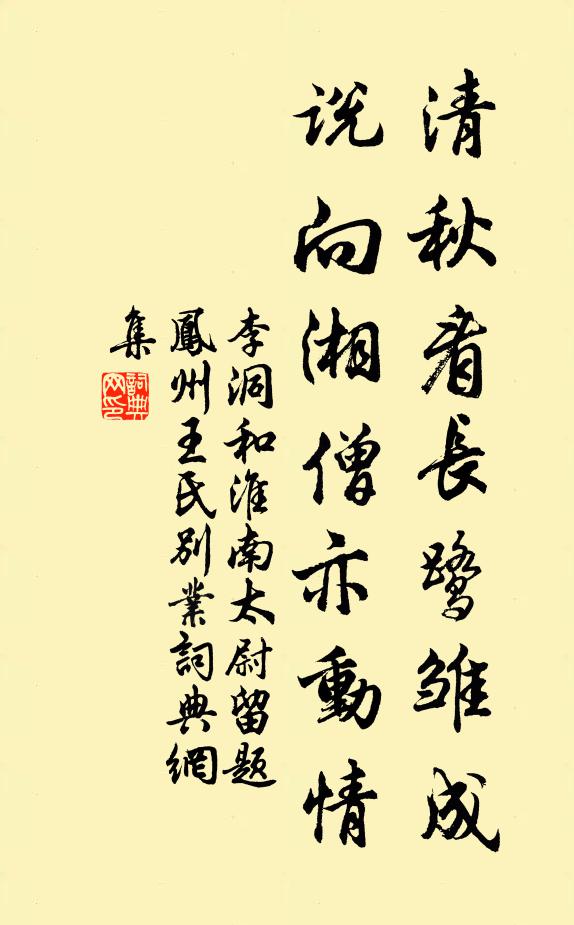 清秋看長鹭雏成
说向湘僧亦動情
李洞和淮南太尉留题
鳳州王氏别業詞典網
集
詞典网印